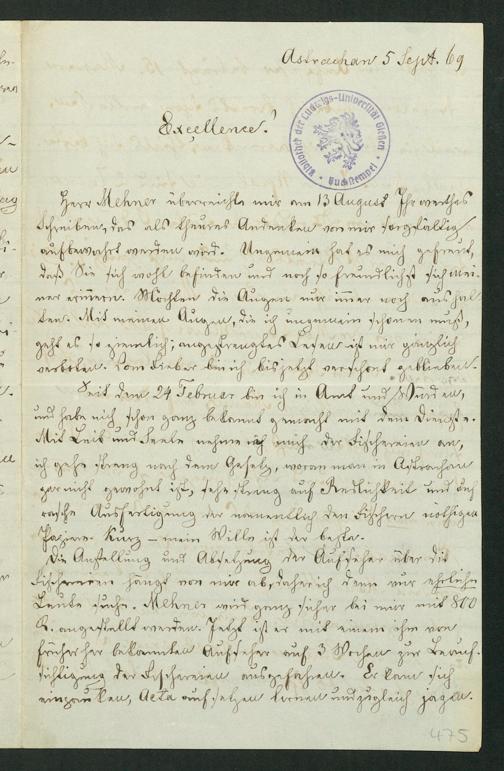 Astrachan 5 Sept. 69
Bibliothek der Ludwigs-Universität Gießen
Buchstempel
Excellence!
Herr Mehner überreichte mir am 13 August Ihr werthes
Schreiben, das als theures Andenken von mir sorgfältig
aufbewahrt werden wird. Ungemein hat es mich gefreut,
daß Sie sich wohl befinden und noch so freundlichst sich mei-
ner erinnern. Möchten die Augen nur immer noch aushal-
ten. Mit meinen Augen, die ich ungemein schonen muß,
geht es so ziemlich; angestrengtes Lesen ist mir gänzlich
verboten. Vom Fieber bin ich bis jetzt verschont geblieben.
Seit dem 24 Februar bin ich in Amt und Würden,
und habe mich schon ganz bekannt gemacht mit dem Dienste.
Mit Leib und Seele nehme ich mich der Fischereien an,
ich gehe streng nach dem Gesetz, woran man in Astrachan
gar nicht gewohnt ist, sehe streng auf Redlichkeit und
rasche Ausfertigung der namentlich den Fischern nöthigen
Papiere. Kurz – mein Wille ist der beste.
Die Anstellung und Absetzung der Aufseher über die
Fischereien hängt von mir ab, daher ich denn nur ehrliche
Leute suche. Mehner wird ganz sicher bei mir mit 800
R. angestellt werden. Jetzt ist er mit einem ihm von
früher her bekannten Aufseher auf 3 Wochen zur Beauf-
sichtigung der Fischereien ausgefahren. Er kann sich
Acta aufsetzen lernen und zugleich jagen.
475